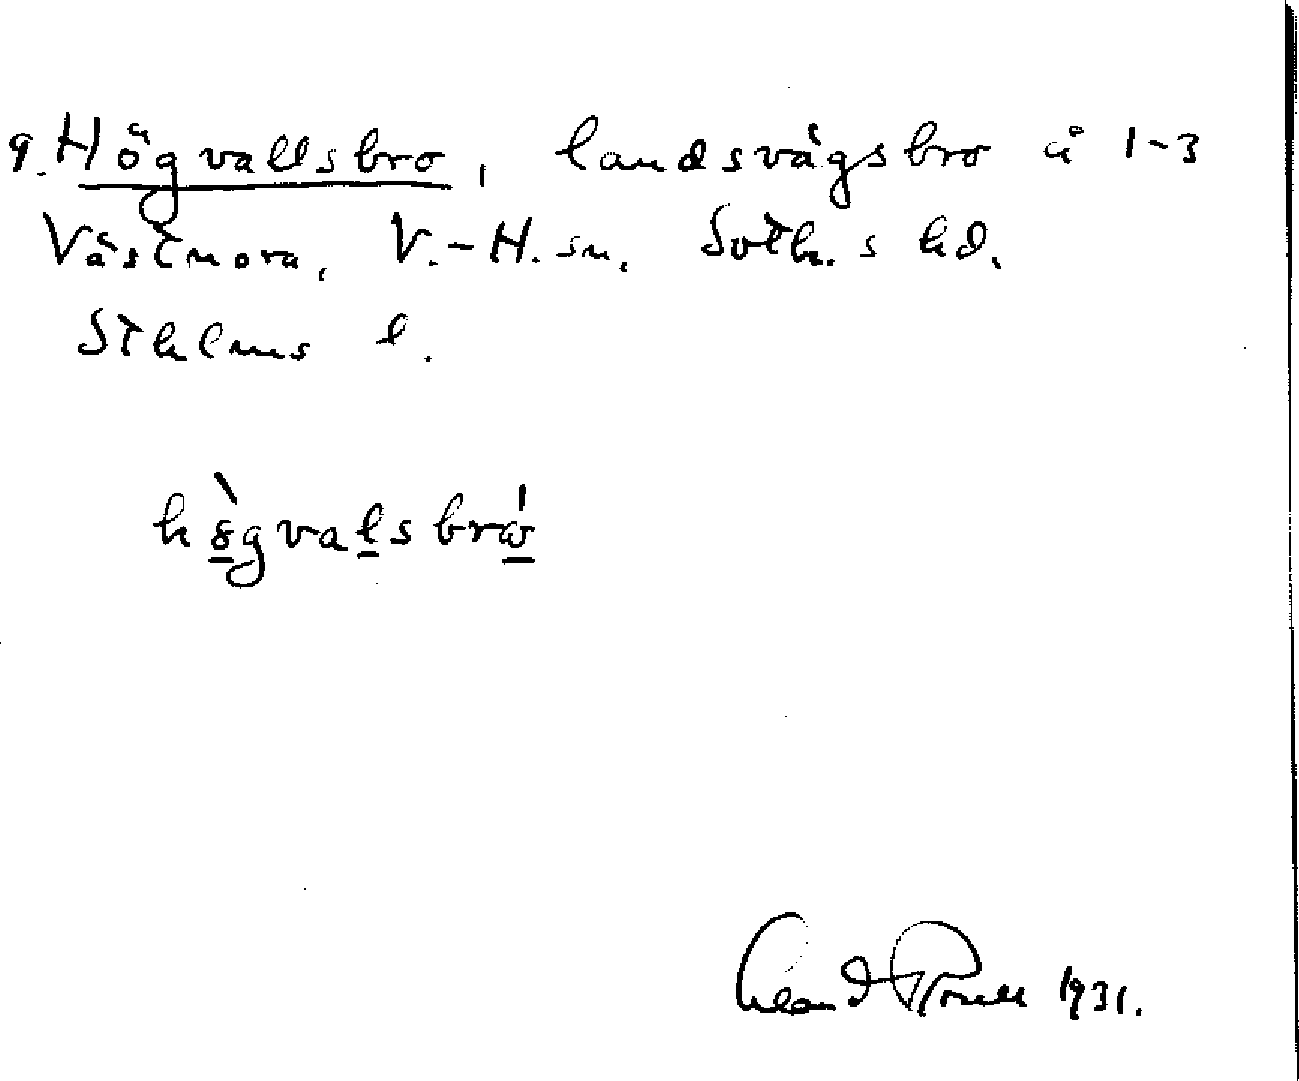 9. Högvallsbro, landsvägsbro å 1-3
Västmora, V.-H. sn. Soth.s hd.
Sthlms l.
hògvalsbrώ
1931.